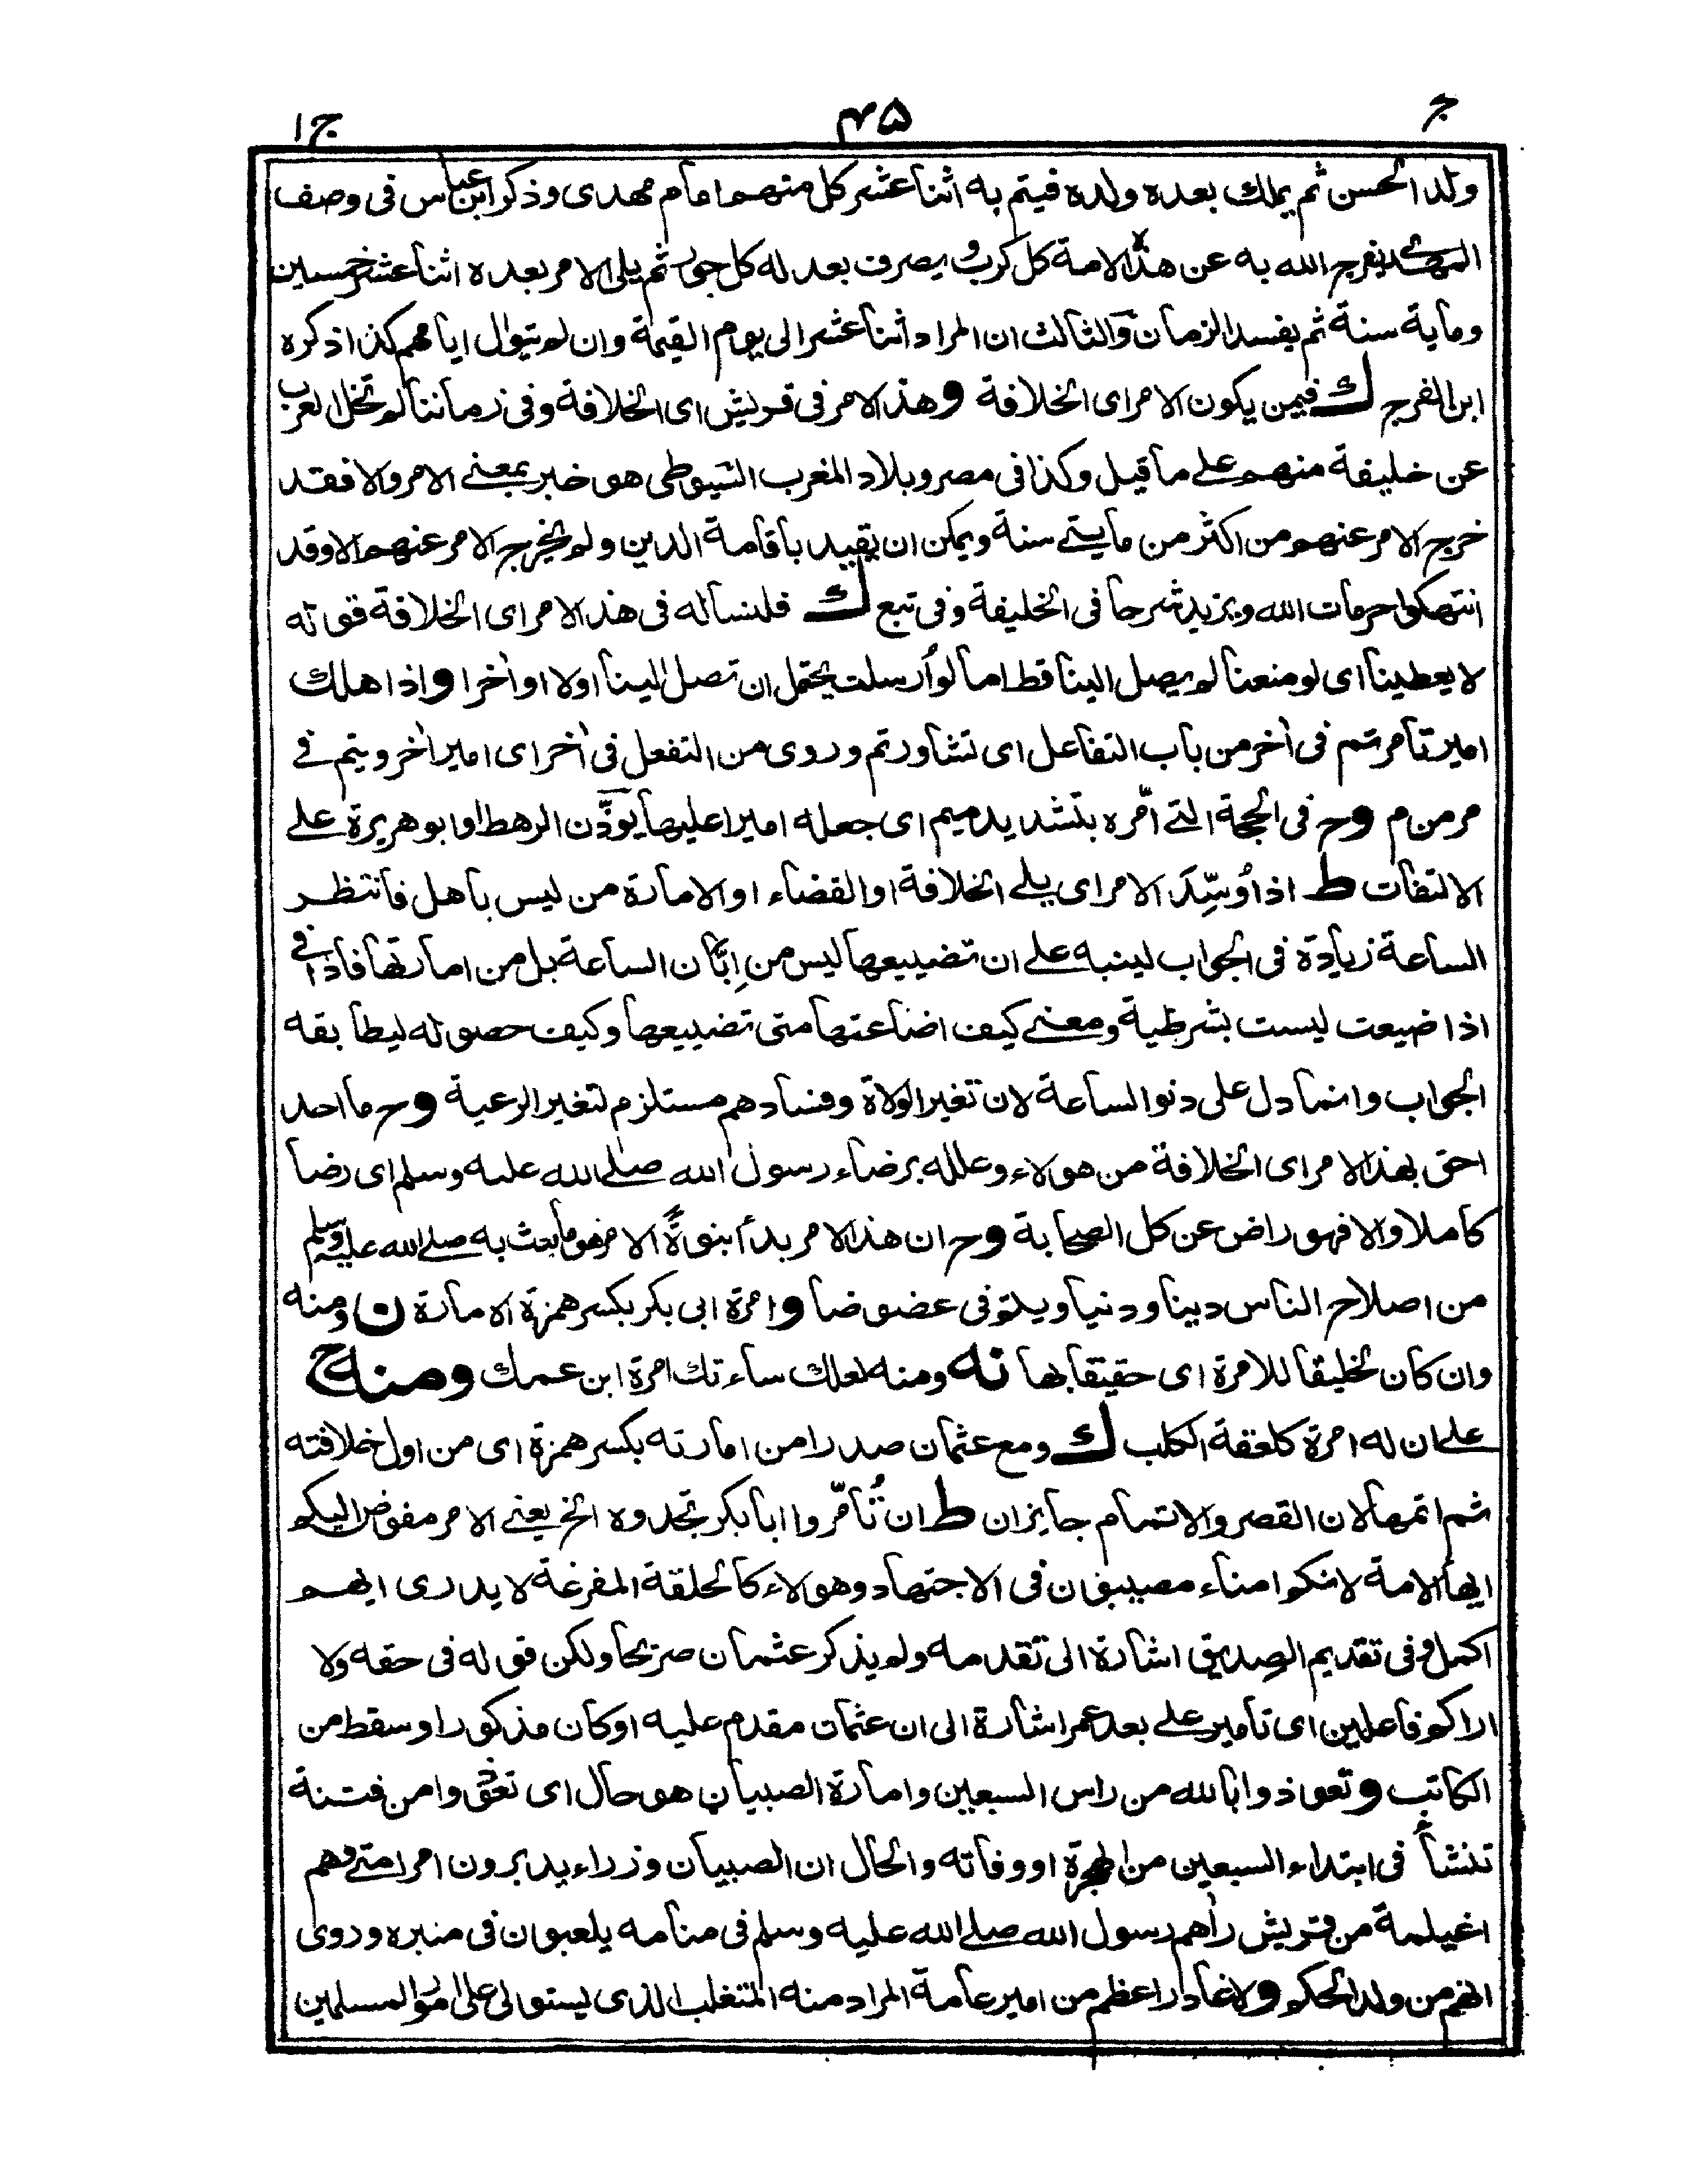 ج ٤٥ ج ا
ولد الحسن ثم يملك بعده ولده فيتم به اثنا عشر كل منهم امام مهدى وذكر ابن عباس فى وصف
المهدى يفرج الله به عن هذه الامة كل كرب ويصرف بعدله كل جور ثم يلى الامر بعده اثنا عشر خمسين
وماية سنة ثم يفسد الزمان والثالث ان المراد اثنا عشر الى يوم القيمة وان لم يتوال ايامهم كذا ذكره
ابن الفرج ك فيمن يكون الامر اى الخلافة وهذا الامر فى قريش اى الخلافة وفى زماننا لم تخل العرب
عن خليفة منهم على ما قيل وكذا فى مصر وبلاد المغرب السيوطى هو خبر بمعنى الامر والا فقد
خرج الامر عنهم من اكثر من مايتى سنة ويمكن ان يقيد باقامة الدين ولم يخرج الامر عنهم الا وقد
انتهكوا حرمات الله ويزيد شرحا فى الخليفة وفى تبع ك فلنساله فى هذا الامر اى الخلافة قوله
لا يعطينا اى لو منعنا لم يصل الينا قط اما لو أرسلت يحتمل ان تصل الينا اولا او أخرا واذا هلك
امير تامرتم فى أخر من باب التفاعل اى تشاورتم وروى من التفعل فى أخر اى امير أخر ويتم فى
مر من م وح فى الحجة التى امّره بتشديد ميم اى جعله اميرا عليها يوذّن الرهط او ابو هريرة على
الالتفات ط اذا وُسِّدَ الامر اى يلى الخلافة او القضاء او الامارة من ليس باهل فانتظر
الساعة زيادة فى الجواب لينبه على ان تضييعها ليس من اِبّان الساعة بل من اماراتها فاذا فى
اذا ضيعت ليست بشرطية ومعنى كيف اضاعتها متى تضييعها وكيف حصوله ليطابقه
الجواب وانما دل على دنو الساعة لان تغير الولاة وفسادهم مستلزم لتغير الرعية وح ما احد
احق بهذا الامر اى الخلافة من هولاء وعلله برضاء رسول الله صلى الله عليه وسلم اى رضا
كاملا والا فهو راض عن كل الصحابة وح ان هذا الامر بدأ نبوةً الامر هو ما بعث به صلى الله عليه وسلم
من اصلاح الناس دينا ودنيا ويلتو فى عضوضا وامرة ابى بكر بكسر همزة الامارة ن ومنه
وان كان لخليقا للامرة اى حقيقا بها نه ومنه لعلك ساءتك امرة ابن عمك ومنه ح
على ان له امرة كلعقة الكلب ك ومع عثمان صدرا من امارته بكسر همزة اى من اول خلافته
ثم اتمها لان القصر والاتمام جايزان ط ان تُأمّروا ابا بكر تجدوه الخ يعنى الامر مفوض اليكم
ايها الامة لانكم امناء مصيبون فى الاجتهاد وهولاء كالحلقة المفرغة لا يدرى ايهم
اكمل وفى تقديم الصديق اشارة الى تقدمه ولم يذكر عثمان صريحا ولكن قوله فى حقه ولا
اراكم فاعلين اى تامير على بعد عمر اشارة الى ان عثمان مقدم عليه او كان مذكورا وسقط من
الكاتب وتعوذوا بالله من راس السبعين وامارة الصبيان هو حال اى تعوذوا من فتنة
تنشأ فى ابتداء السبعين من الهجرة او وفاته والحال ان الصبيان وزراء يدبرون امر امتى وهم
اغيلمة من قريش رأهم رسول الله صلى الله عليه وسلم فى منامه يلعبون فى منبره وروى
انهم من ولد الحكم ولا غادر اعظم من امير عامة المراد منه المتغلب الذى يستولى على امور المسلمين